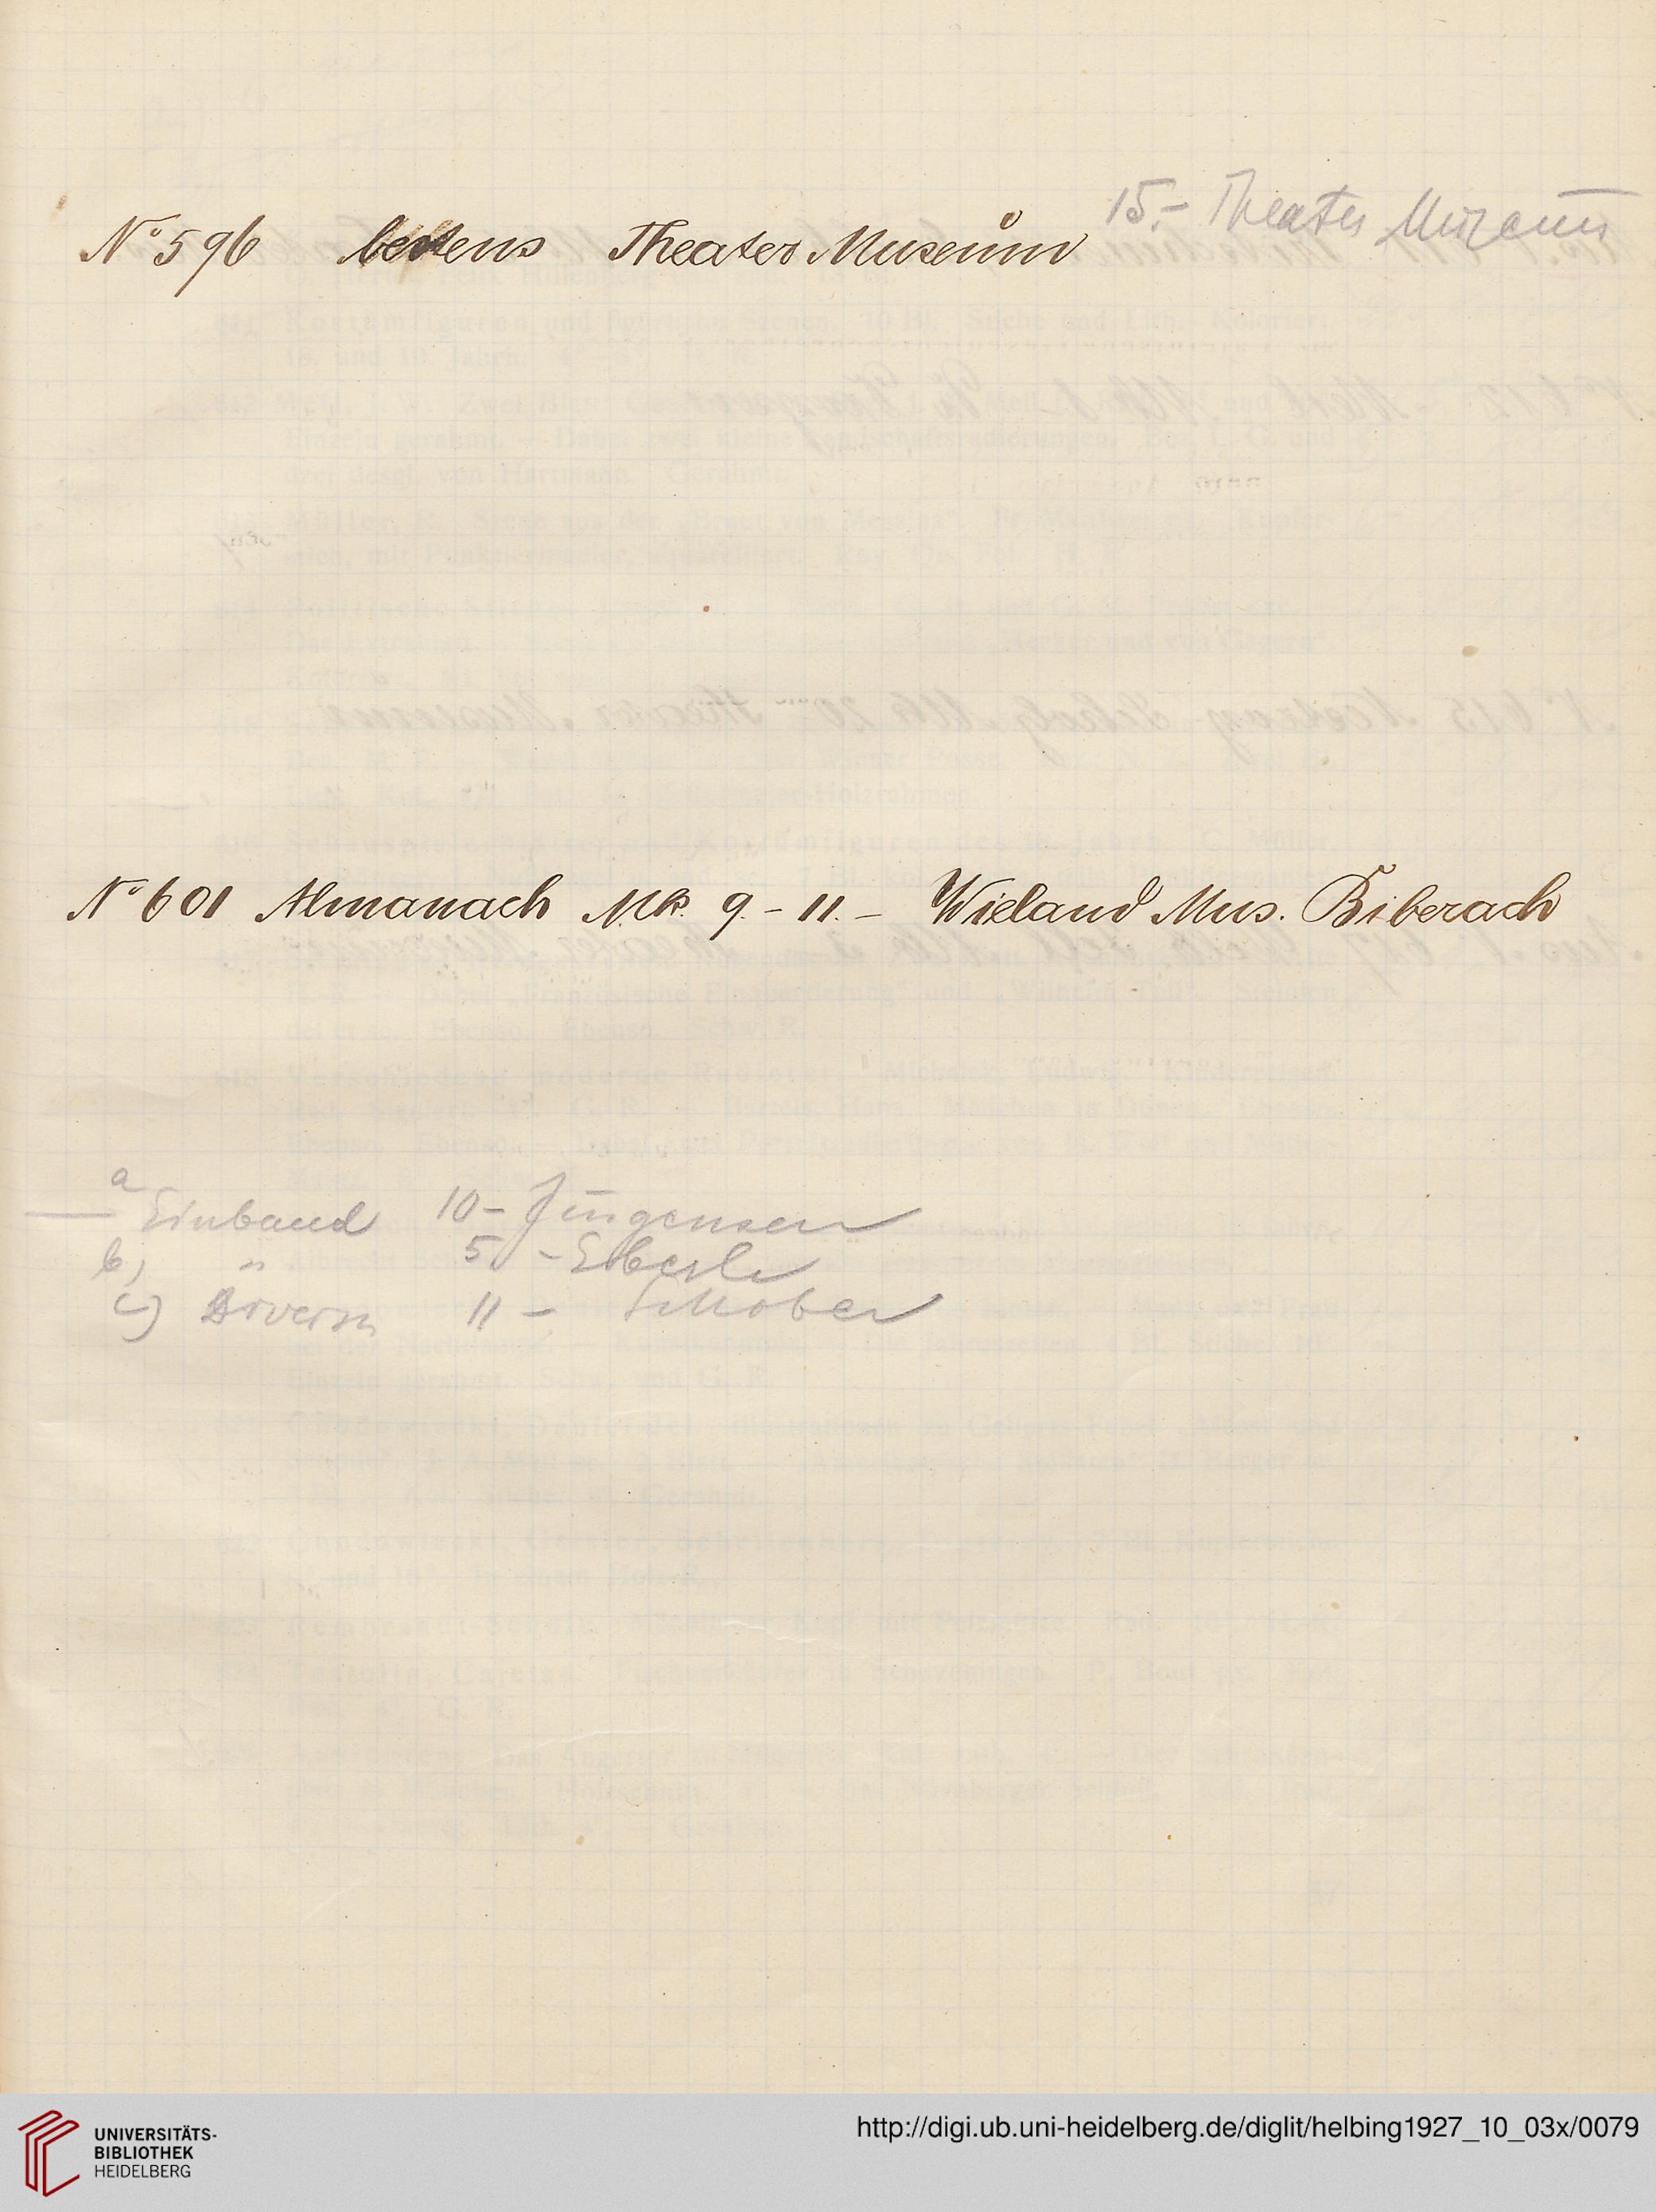 No 596 bestens Theater Museum 15.- Theater Museum
No 601 Almanach Mk. 9.- 11.- Wieland Mus. Biberach
a
Einband 10 - Jürgensen
b) " 5 - Eberle
c) Divers 11 - Schober
UNIVERSITÄTS-
BIBLIOTHEK
HEIDELBERG
http://digi.ub.uni-heidelberg.de/diglit/helbing1927_10_03x/0079